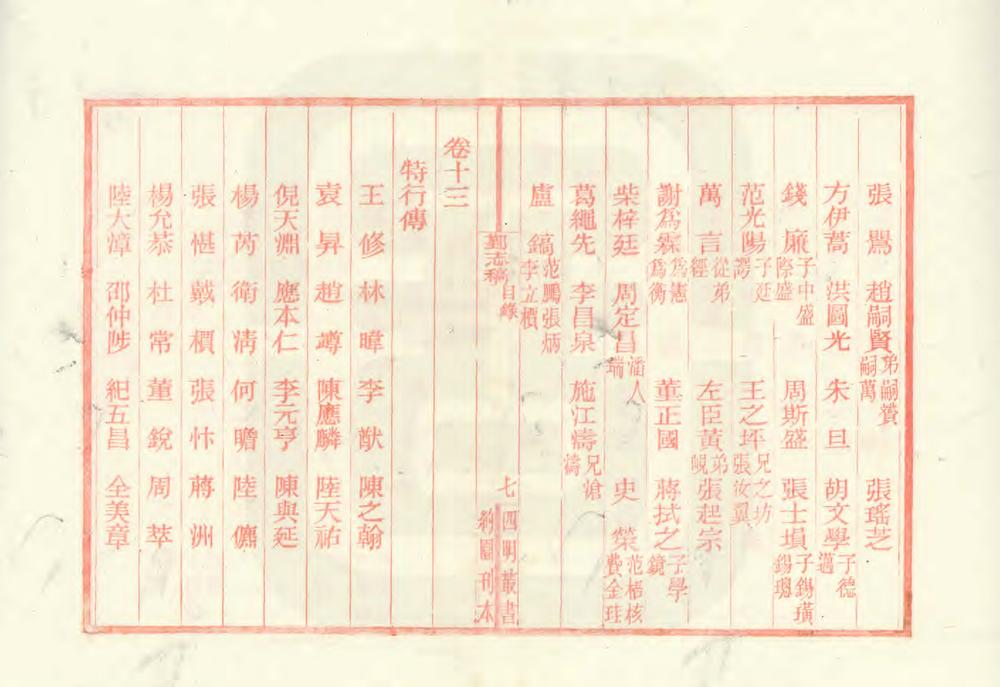 張鷽 趙嗣賢弟嗣贇嗣萬 張瑤芝
方伊蒿 洪圖光 朱旦 胡文學子德邁
錢廉子中盛際盛 周斯盛 張士塤子錫璜錫璁
范光陽子廷諤 王之坪兄之坊張汝翼
萬言從弟經 左臣黃弟峴 張起宗
謝為霖為憲為衡 董正國 蔣拭之子學鏡
柴梓廷 周定昌潘人瑞 史榮范梧核費金珪
葛繩先 李昌泉 施江濤兄滄濤
盧鎬范鵬張炳李立櫝
鄞志稿 目錄 七 四明叢書 約園刊本
卷十三
特行傳
王修 林暐 李猷 陳之翰
袁昇 趙竴 陳應麟 陸天祐
倪天淵 應本仁 李元亨 陳與延
楊芮 衛清 何瞻 陸儦
張惎 戴檟 張忭 蔣洲
楊允恭 杜常 董銳 周萃
陸大漳 邵仲陟 紀五昌 全美章